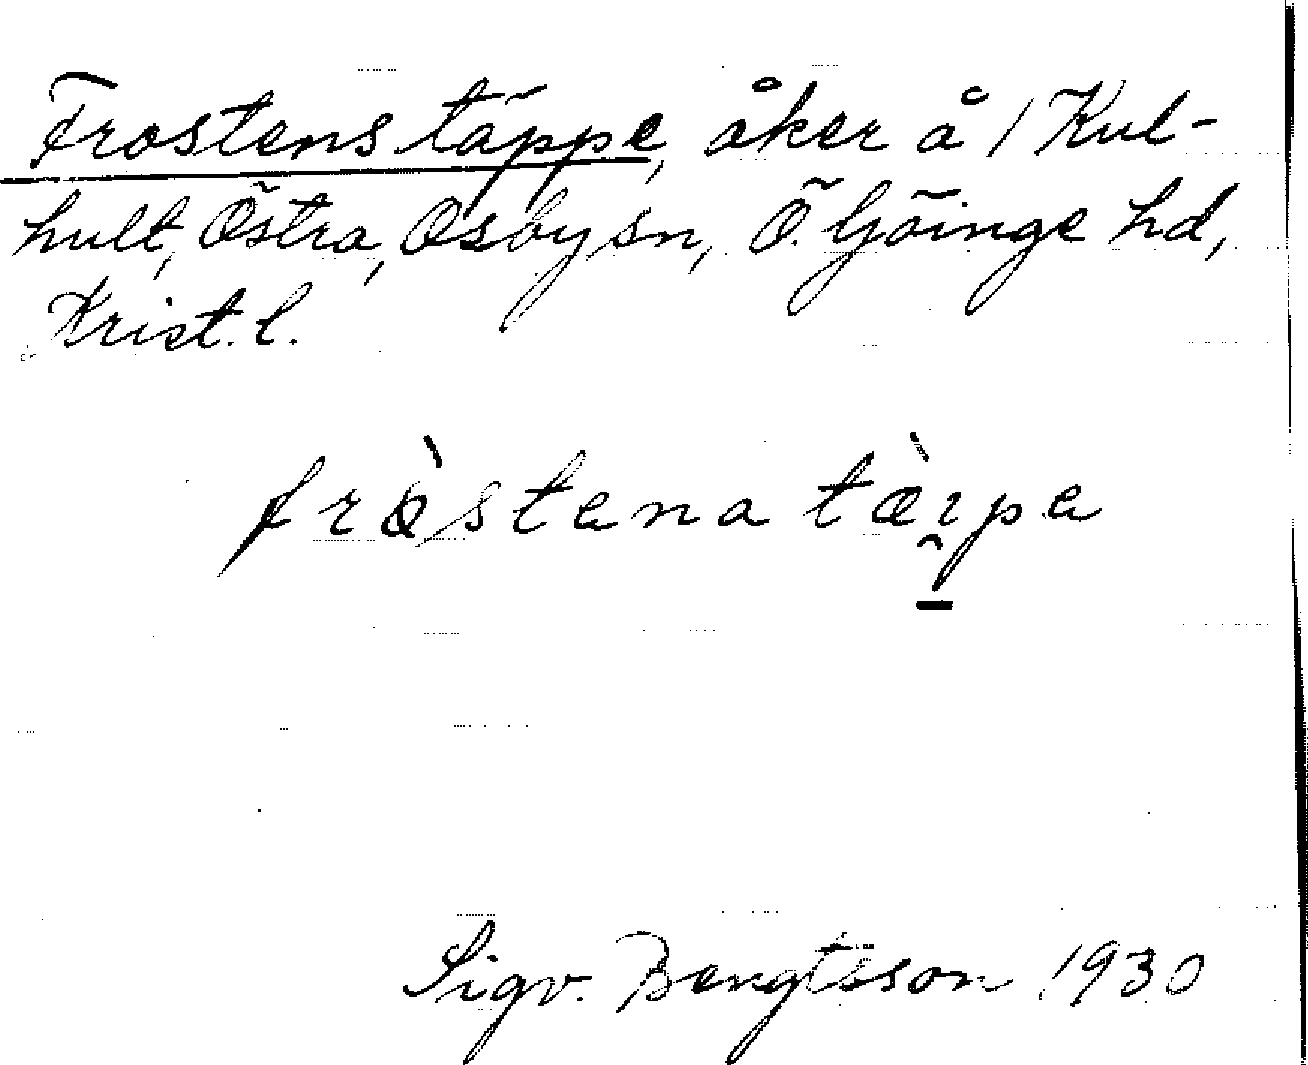 Frostens täppe, åker å 1 Kul-
hult, Östra, Osby sn, Ö. Göinge hd,
Krist. l.
fròstena tàpe
Sigv. Bengtsson 1930